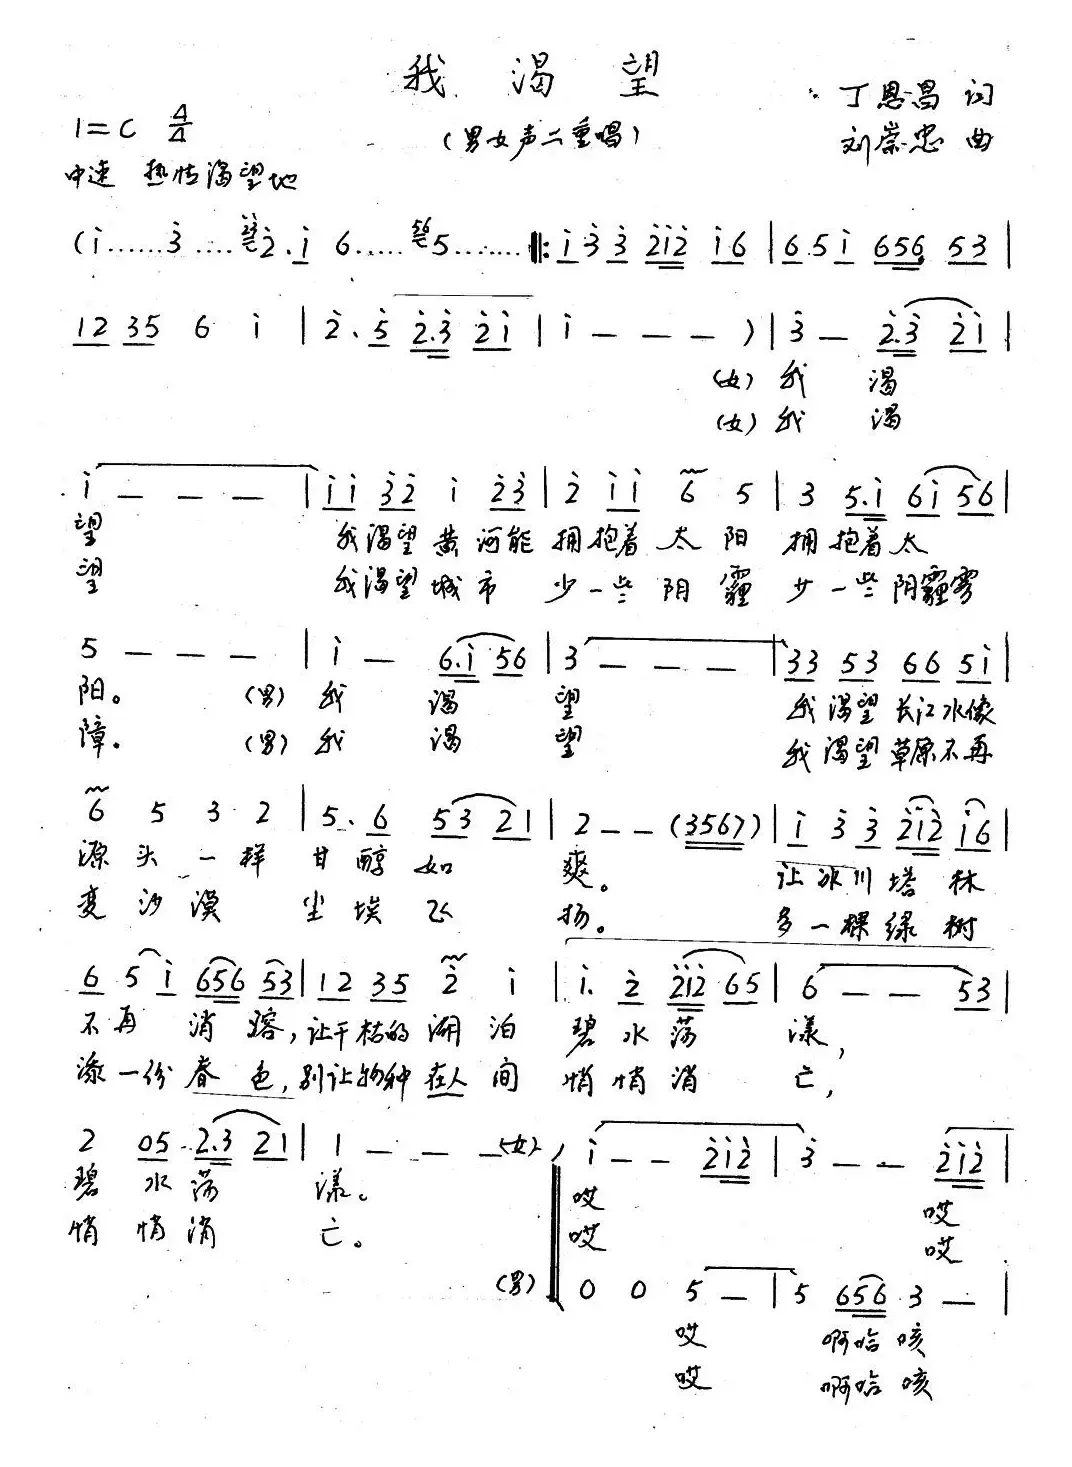 我渴望
丁恩昌 词
1=C 4/4
(男女声二重唱)
刘崇忠 曲
中速 热情渴望地
(i……3……2.i 6……5………‖: i 3 3 2i2 i6 | 6 5 i 656 53 |
12 35 6 i | 2. 5 2.3 2i | i - - - ) | 3 - 2.3 2i |
(女) 我 渴
(女) 我 渴
i - - - | ii 32 i 23 | 2 ii 6 5 | 3 5.i 6i 56 |
望 我渴望黄河能拥抱着太阳 拥抱着太
望 我渴望城市 少一些阴霾 少一些阴霾雾
5 - - - | i - 6.i 56 | 3 - - - | 33 53 66 5i |
阳。 (男) 我 渴 望 我渴望长江水像
障。 (男) 我 渴 望 我渴望草原不再
6 5 3 2 | 5. 6 53 21 | 2 - - (3567) | i 3 3 2i2 i6 |
源头一样 甘醇如 爽。 让冰川塔林
变沙漠 尘埃飞 扬。 多一棵绿树
6 5 i 656 53 | 12 35 2 i | i. 2 2i2 65 | 6 - - 53 |
不再 消 溶,让干枯的湖泊 碧水荡 漾,
添一份春色,别让物种在人间 悄悄消 亡,
2 05 2.3 21 | 1 - - - (女) i - - 2i2 | 3 - - 2i2 |
碧水荡 漾。 哎 哎
悄悄消 亡。 哎 哎
(男) 0 0 5 - | 5 656 3 - |
哎 啊哈咳
哎 啊哈咳